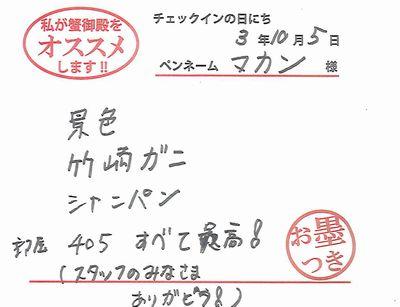 私が蟹御殿を
オススメ
します!!
チェックインの日にち
3年10月5日
ペンネーム マカン 様
景色
竹崎ガニ
シャンパン
部屋 405 すべて最高!
(スタッフのみなさま
ありがとう!)
お墨つき